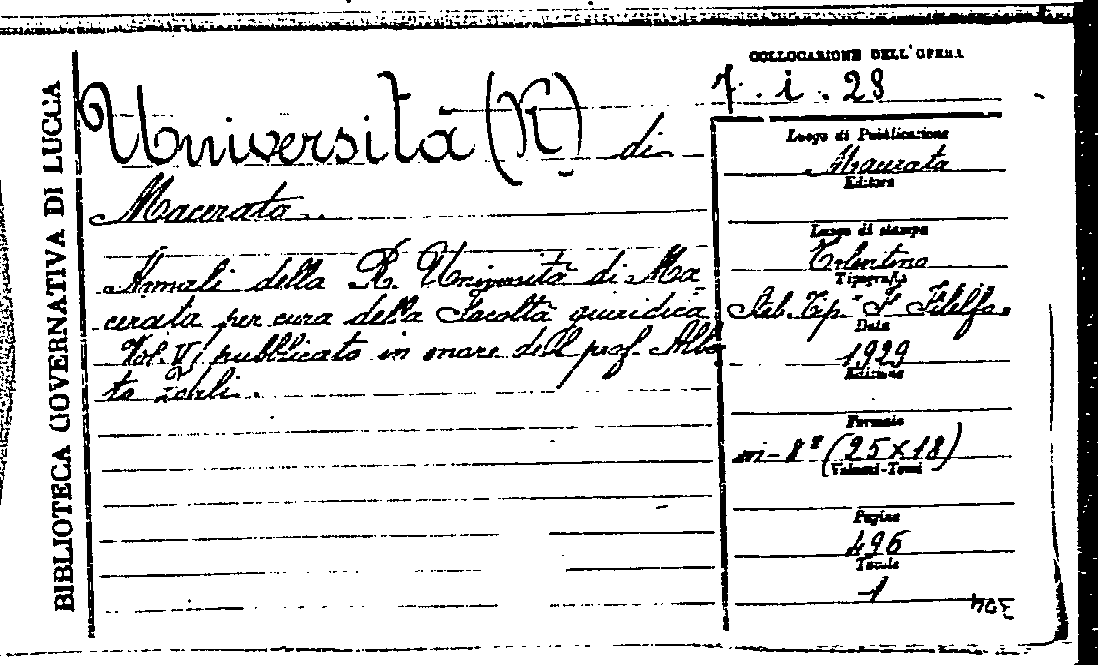 BIBLIOTECA GOVERNATIVA DI LUCCA
COLLOCAZIONE DELL'OPERA
7. i. 23
Università (R) di
Macerata.
Annali della R. Università di Ma
cerata per cura della Facoltà giuridica
Vol. V, pubblicato in onore del prof. Alber
to Zorli.
Luogo di Pubblicazione
Macerata
Editore
Luogo di stampa
Tolentino
Tipografia
Stab. Tip. "F. Filelfo.
Data
1929
Edizione
Formato
in-8° (25x18)
Volumi-Tomi
Pagine
496
Tavole
1
304